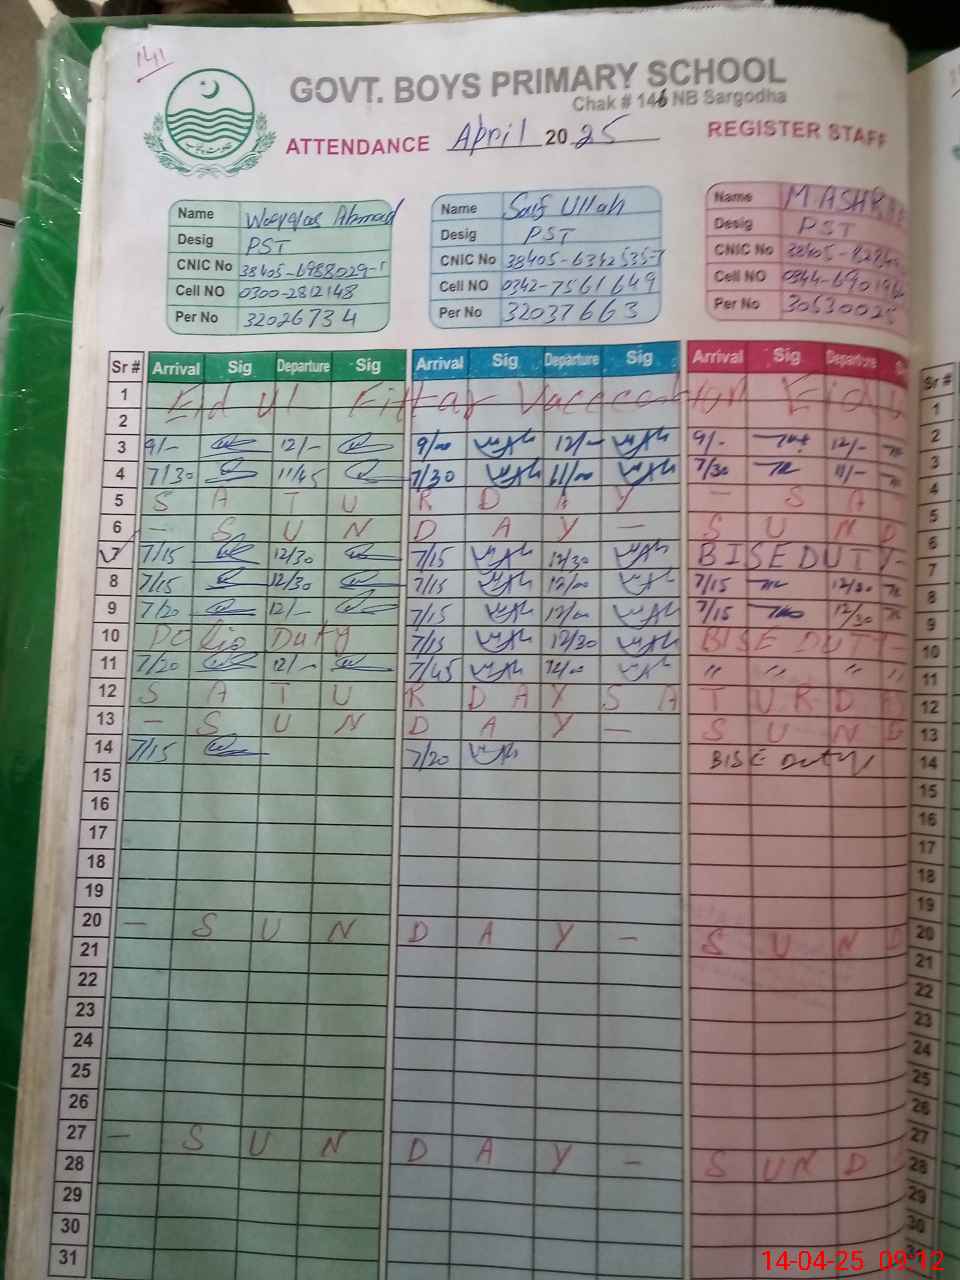 141
GOVT. BOYS PRIMARY SCHOOL
Chak # 146 NB Sargodha
ATTENDANCE April 2025 REGISTER STAFF
Name Ahmad
Desig PST
CNIC No 38405-6988029-
Cell NO 0300-2812148
Per No 32026734
Name Saif Ullah
Desig PST
CNIC No 38405-6342535-7
Cell NO 0342-7561649
Per No 32037663
Name M ASHR
Desig PST
CNIC No 38405-8284
Cell NO 0344-6901
Per No 3053002
Sr # Arrival Sig Departure Sig Arrival Sig Departure Sig Arrival Sig Departure Sr #
1 Eid Ul Eid 1
2 2
3 9/- 12/- 9/00 12/- 9/- 12/- 3
4 7/30 11/45 7/30 11/00 7/30 11/- 4
5 S A T U R D A Y - S A 5
6 - S U N D A Y - S U N D 6
7 7/15 12/30 7/15 12/30 BISE DUTY- 7
8 7/15 12/30 7/15 12/00 7/15 12/30 8
9 7/20 12/- 7/15 12/00 7/15 12/30 9
10 Polio Duty 7/15 12/30 BISE DUTY- 10
11 7/20 12/- 7/45 12/00 " " " " 11
12 S A T U R D A Y S A T U R D A 12
13 - S U N D A Y - S U N D 13
14 7/15 7/20 BISE Duty 14
15 15
16 16
17 17
18 18
19 19
20 - S U N D A Y - S U N D 20
21 21
22 22
23 23
24 24
25 25
26 26
27 - S U N D A Y - S U N D 27
28 28
29 29
30 30
31
14-04-25 09:12